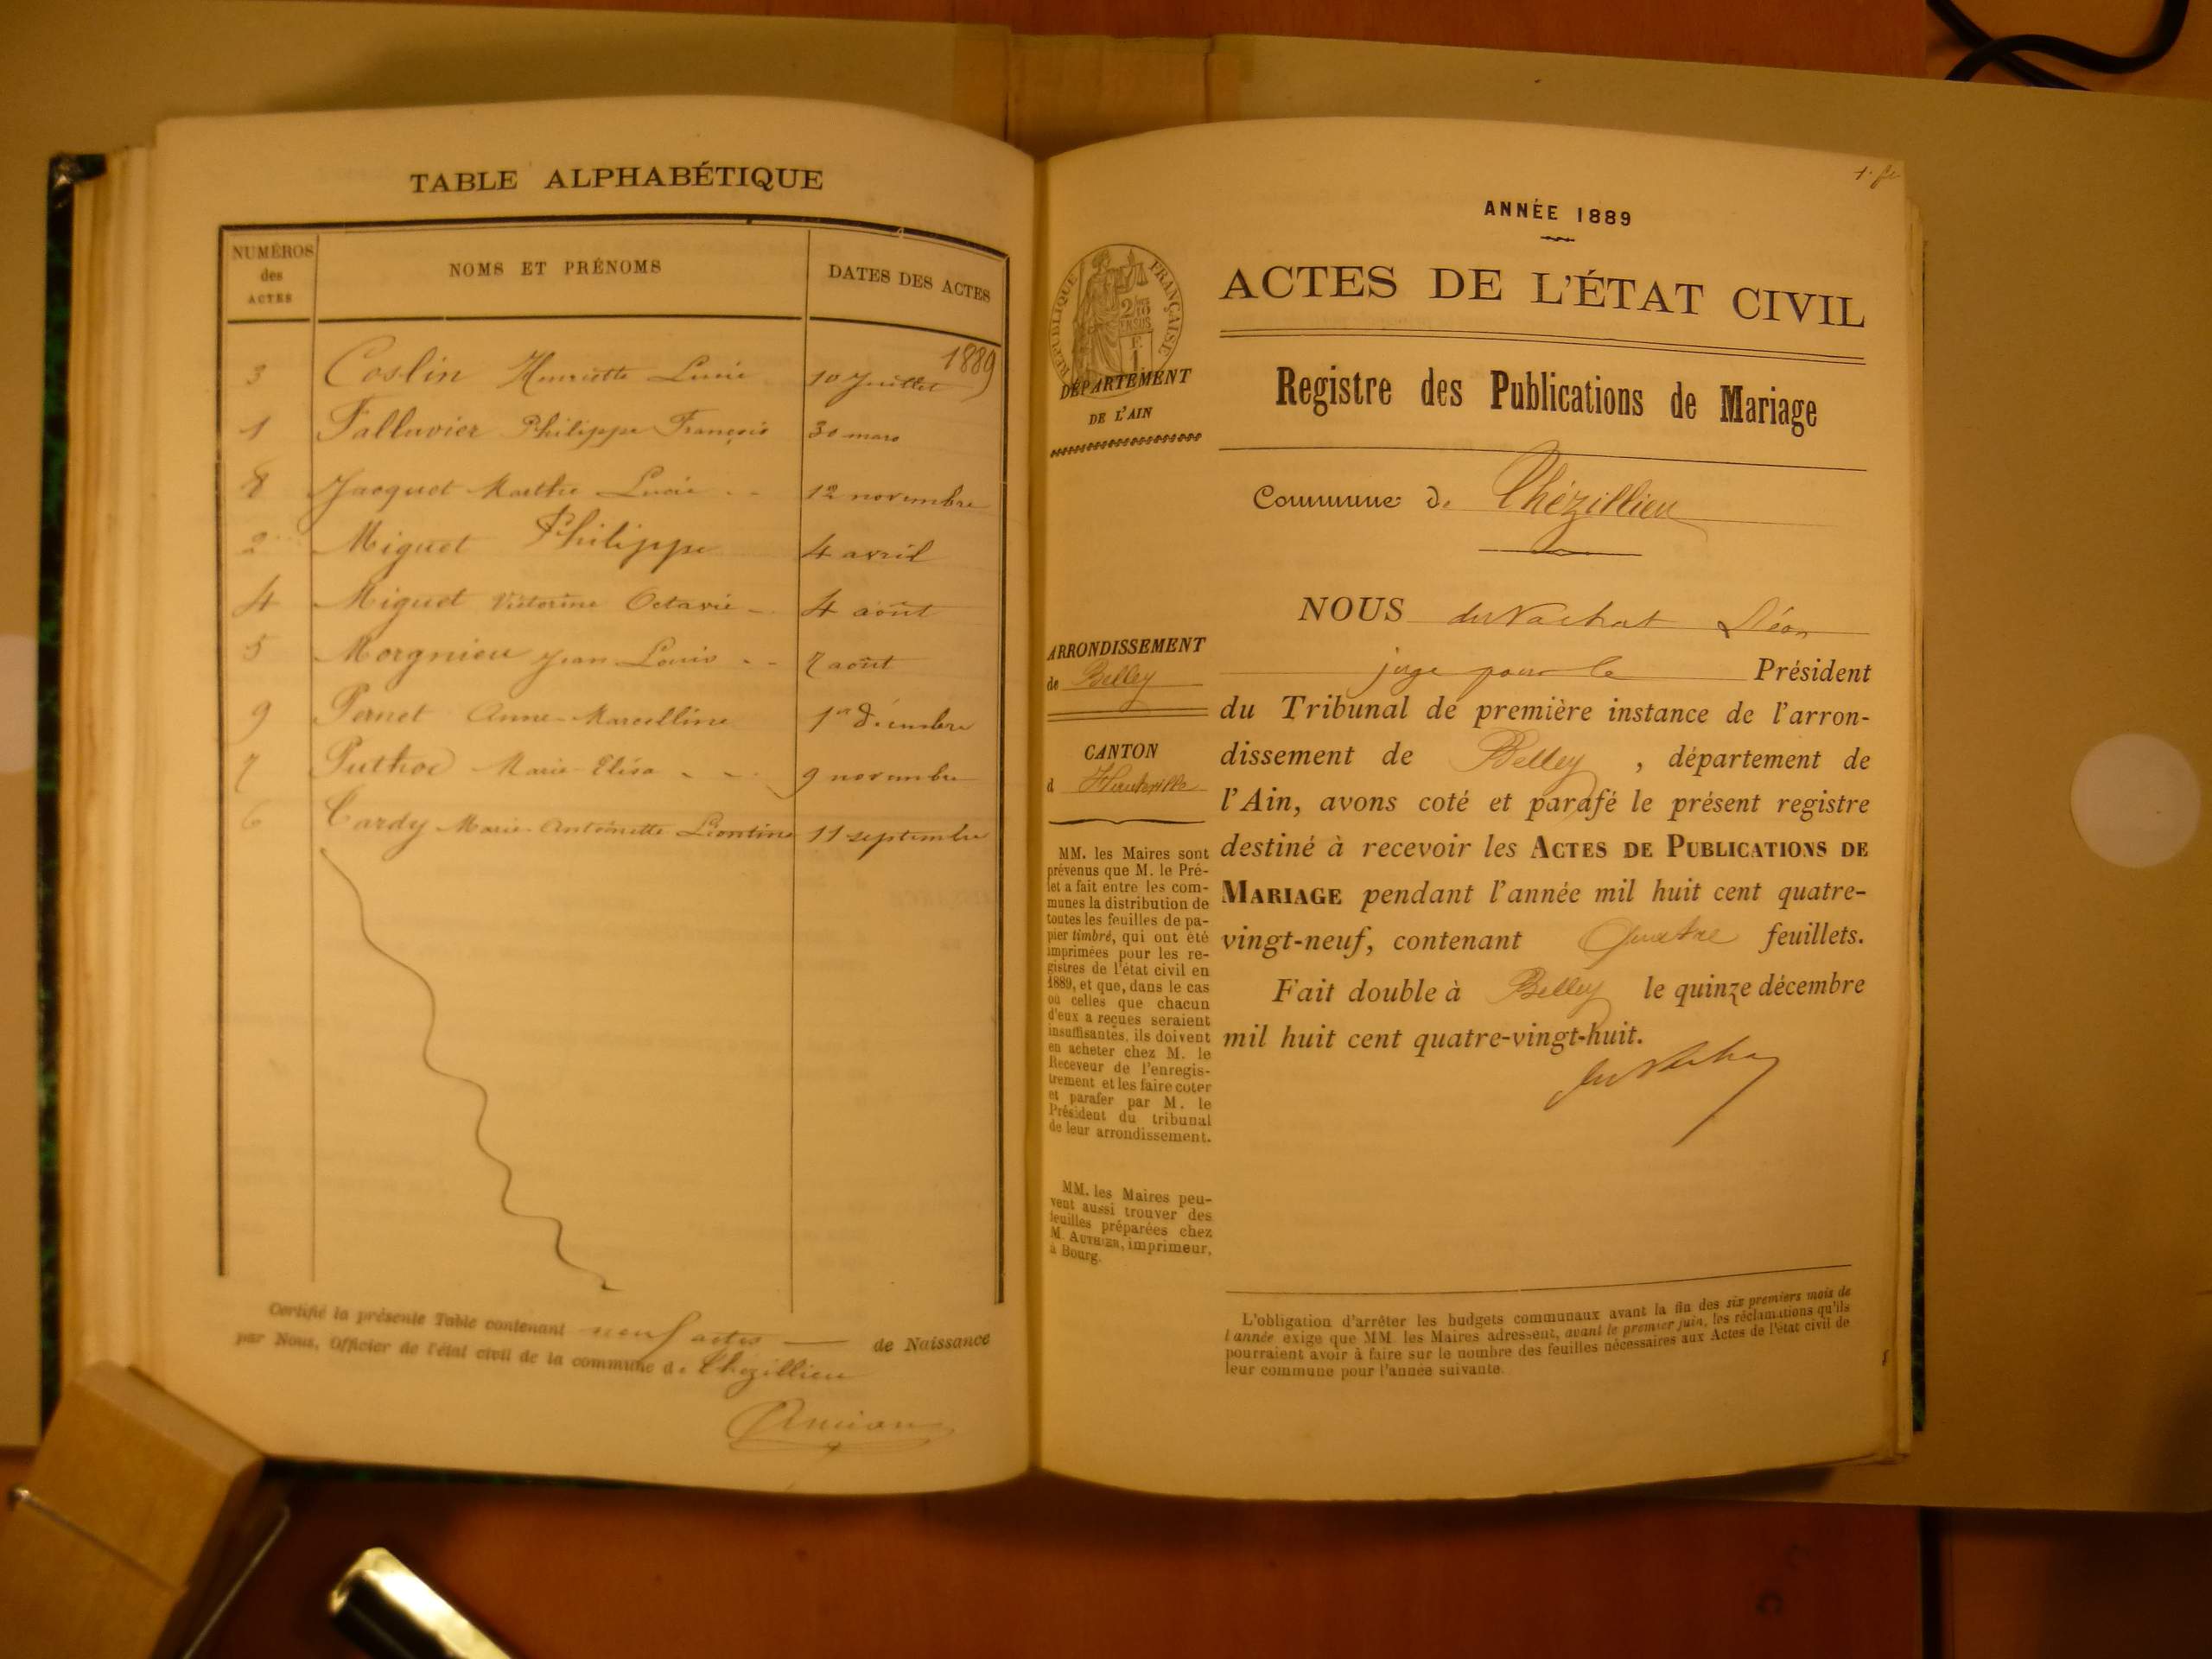 TABLE ALPHABÉTIQUE
NUMÉROS
des
ACTES
NOMS ET PRÉNOMS
DATES DES ACTES
1889
3 Coslin Henriette Lucie 10 Juillet
1 Falluvier Philippe François 30 mars
8 Jacquet Marthe Lucie 12 novembre
2 Miguet Philippe 4 avril
4 Miguet Victorine Octavie 4 août
5 Morgnieu Jean Louis 7 août
9 Pernet Anne Marcelline 1er décembre
7 Puthod Marie Elisa 9 novembre
6 Tardy Marie Antoinette Léontine 11 septembre
Certifié la présente Table contenant neuf actes de Naissance
par Nous, Officier de l'état civil de la commune de Thézillieu
1. f.
ANNÉE 1889
RÉPUBLIQUE FRANÇAISE
ACTES DE L'ÉTAT CIVIL
DÉPARTEMENT
DE L'AIN
Registre des Publications de Mariage
Commune de Thézillieu
ARRONDISSEMENT
de Belley
CANTON
d Hauteville
MM. les Maires sont
prévenus que M. le Pré-
fet a fait entre les com-
munes la distribution de
toutes les feuilles de pa-
pier timbré, qui ont été
imprimées pour les re-
gistres de l'état civil en
1889, et que, dans le cas
où celles que chacun
d'eux a reçues seraient
insuffisantes, ils doivent
en acheter chez M. le
Receveur de l'enregis-
trement et les faire coter
et parafer par M. le
Président du tribunal
de leur arrondissement.
MM. les Maires peu-
vent aussi trouver des
feuilles préparées chez
M. AUTHIER, imprimeur,
à Bourg.
NOUS du Vachat Léon
juge pour le Président
du Tribunal de première instance de l'arron-
dissement de Belley, département de
l'Ain, avons coté et parafé le présent registre
destiné à recevoir les ACTES DE PUBLICATIONS DE
MARIAGE pendant l'année mil huit cent quatre-
vingt-neuf, contenant Quatre feuillets.
Fait double à Belley le quinze décembre
mil huit cent quatre-vingt-huit.
du Vachat
L'obligation d'arrêter les budgets communaux avant la fin des six premiers mois de
l'année exige que MM. les Maires adressent, avant le premier juin, les réclamations qu'ils
pourraient avoir à faire sur le nombre des feuilles nécessaires aux Actes de l'état civil de
leur commune pour l'année suivante.